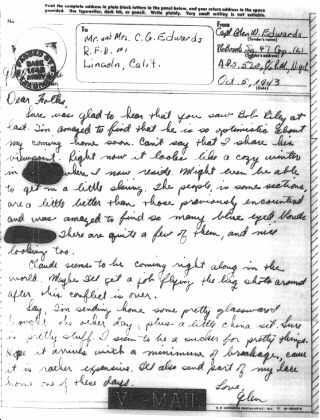 Print the complete address in plain block letters in the panel below, and your return address in the space provided. Use typewriter, dark ink, or pencil. Write plainly. Very small writing is not suitable.
No.
To
From
Mr. and Mrs. C. G. Edwards
R.F.D. #1
Lincoln, Calif.
Capt. Glen W. Edwards
(Sender's name)
A.P.O. 520,
Oct. 5, 1943
(Date)
Dear Folks,
Sure was glad to hear that you saw Bob Riley at
last. I'm amazed to find that he is so optimistic about
my coming home soon. Can't say that I share his
viewpoint. Right now it looks like a cozy winter
in where I now reside. Might even be able
to get in a little skiing. The people, in some sections,
are a little better than those previously encountered
and was amazed to find so many blue eyed blonds
There are quite a few of them, and nice
looking too.
Claude seems to be coming right along in the
world. Maybe I'll get a job flying the big shots around
after this conflict is over.
Say, I'm sending home some pretty glassware I
bought the other day, plus a little china set. Sure
is pretty stuff. I seem to be a sucker for pretty things.
Hope it arrives with a minimum of breakage, cause
it is rather expensive. I'll also send part of my lace
home one of these days.
Love,
Glen
V - MAIL